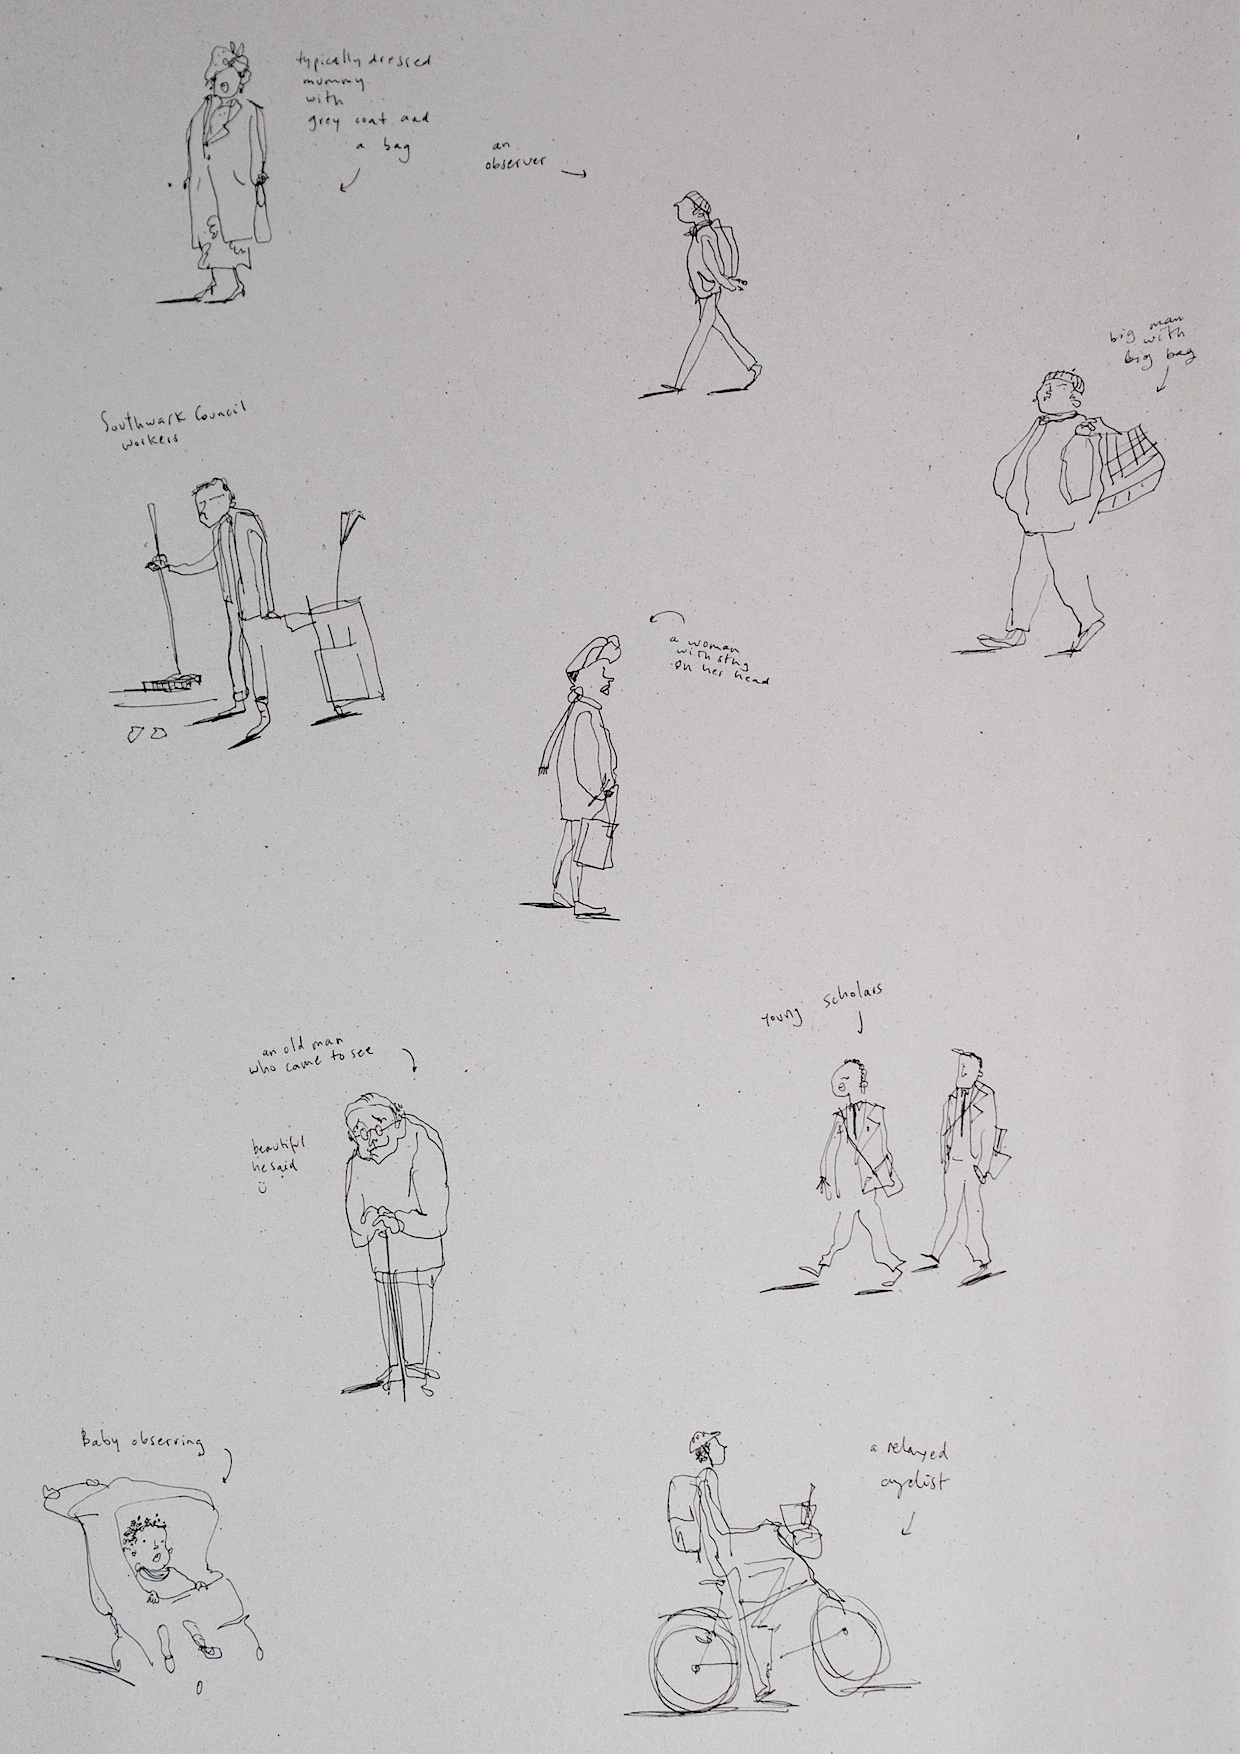 typically dressed
mummy
with
grey coat and
a bag
an
observer
big man
with
big bag
Southwark Council
workers
a woman
with sthg
on her head
young scholars
an old man
who came to see
beautiful
he said
Baby observing
a relaxed
cyclist